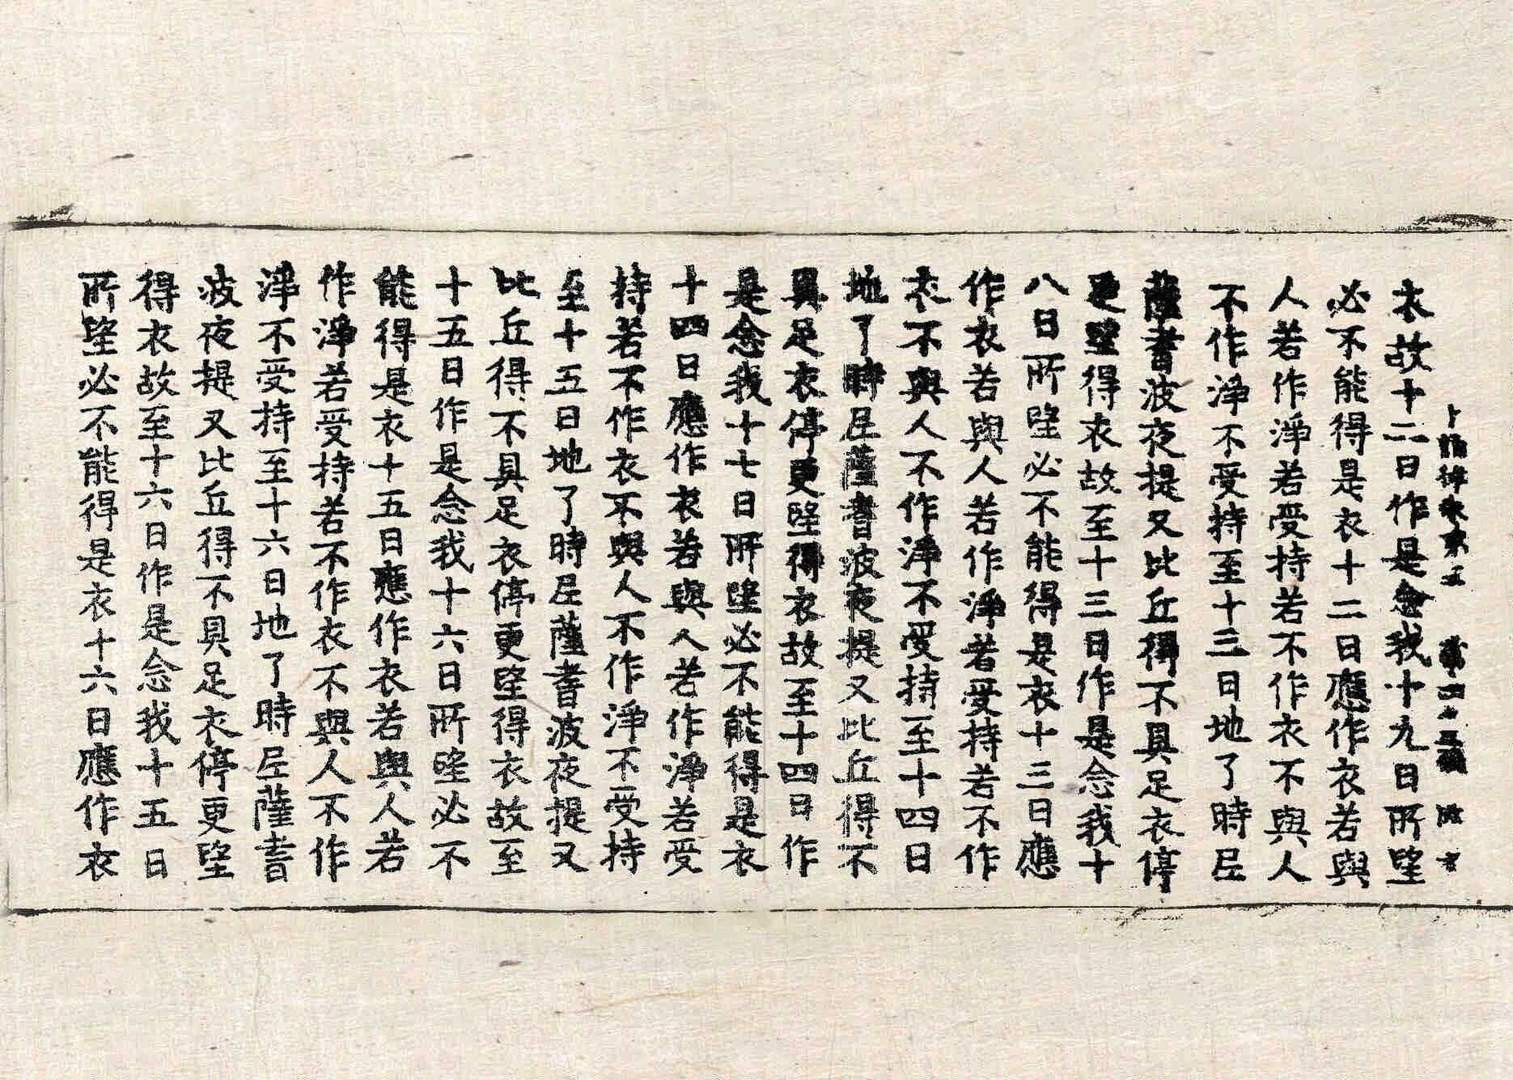 十誦律卷第五　第四十三張　隨字
衣故十二日作是念我十九日所望
必不能得是衣十二日應作衣若與
人若作淨若受持若不作衣不與人
不作淨不受持至十三日地了時尼
薩耆波夜提又比丘得不具足衣停
更望得衣故至十三日作是念我十
八日所望必不能得是衣十三日應
作衣若與人若作淨若受持若不作
衣不與人不作淨不受持至十四日
地了時尼薩耆波夜提又比丘得不
具足衣停更望得衣故至十四日作
是念我十七日所望必不能得是衣
十四日應作衣若與人若作淨若受
持若不作衣不與人不作淨不受持
至十五日地了時尼薩耆波夜提又
比丘得不具足衣停更望得衣故至
十五日作是念我十六日所望必不
能得是衣十五日應作衣若與人若
作淨若受持若不作衣不與人不作
淨不受持至十六日地了時尼薩耆
波夜提又比丘得不具足衣停更望
得衣故至十六日作是念我十五日
所望必不能得是衣十六日應作衣